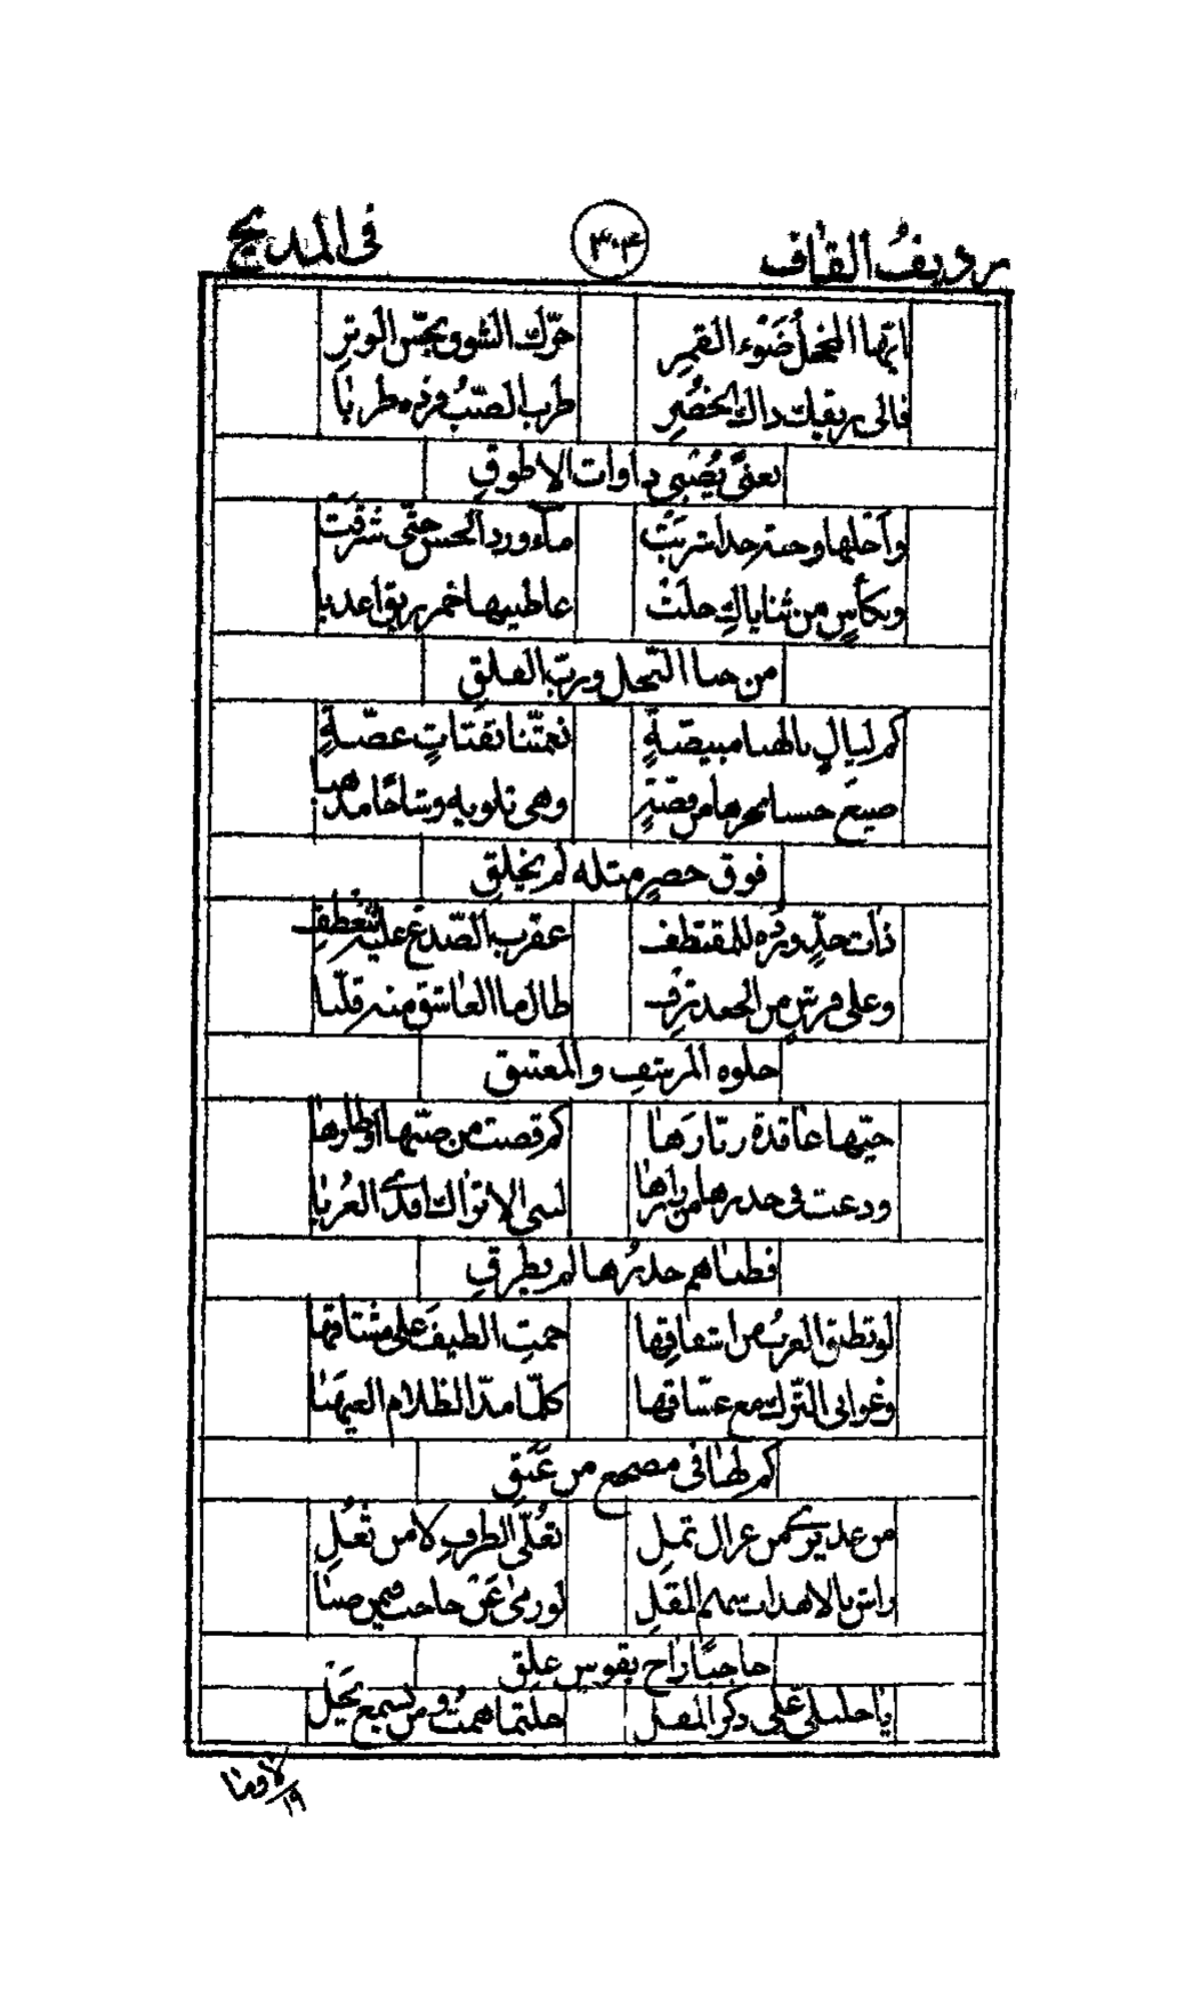 رديف القاف ٣٠٤ في المديح
ايّها المخجل ضَوْء القمرِ حرّك الشوق بجسّ الوترِ
فالى ريقك ذاك الخضرِ طرب الصّبُ فزده طربا
بغنىً يُصْبي ذوات الاطوقِ
وآجلها وجنة خدا شربَتْ ماء ورد الحسن حتّى شرقت
وبكأسٍ من ثناياك حلَتْ عاطنيها خمر ريق اعذبا
من جنا النّحل وربّ الفلقِ
كم ليالٍ بالهنا مبيضّةٍ نعمتنا بفتاتٍ غضّةٍ
صيغ حسنا نحرها من فضّةٍ وهي تلويه وشاحًا مذهبا
فوق خصرٍ مثله لم يخلقِ
ذات خدٍّ وردُه للمقتطف عقرب الصّدغ عليه تنعطف
وعلى فرشٍ من الجعد ترف طالما العاشق منه قلّبا
حلوة المرشفِ والمعتنق
حيّها عاقدة زنّارَها كم قضت من صبّها اوطارها
ودعت في خدرها من زارها لسى الاتراك افدي العُربا
فظباهم خدرُها لم يطرقِ
لو تطيق العربُ من اشفاقها حمت الطيف على مشتاقها
وغواني التّرك مع عشّاقها كلّما مدّ الظلام الغيهبا
كم لها في مضجع من عَبَقِ
من عذيري من غزال ثمل ثُعليّ الطرفِ لا من ثُعَلِ
راش بالاهداب سهم المقلِ لو رمى عن حاجب صبا
حاجبًا راح بقوس علِق
يا خليليّ على ذكر المقل خلتما همتُ ومن يسمع يخل